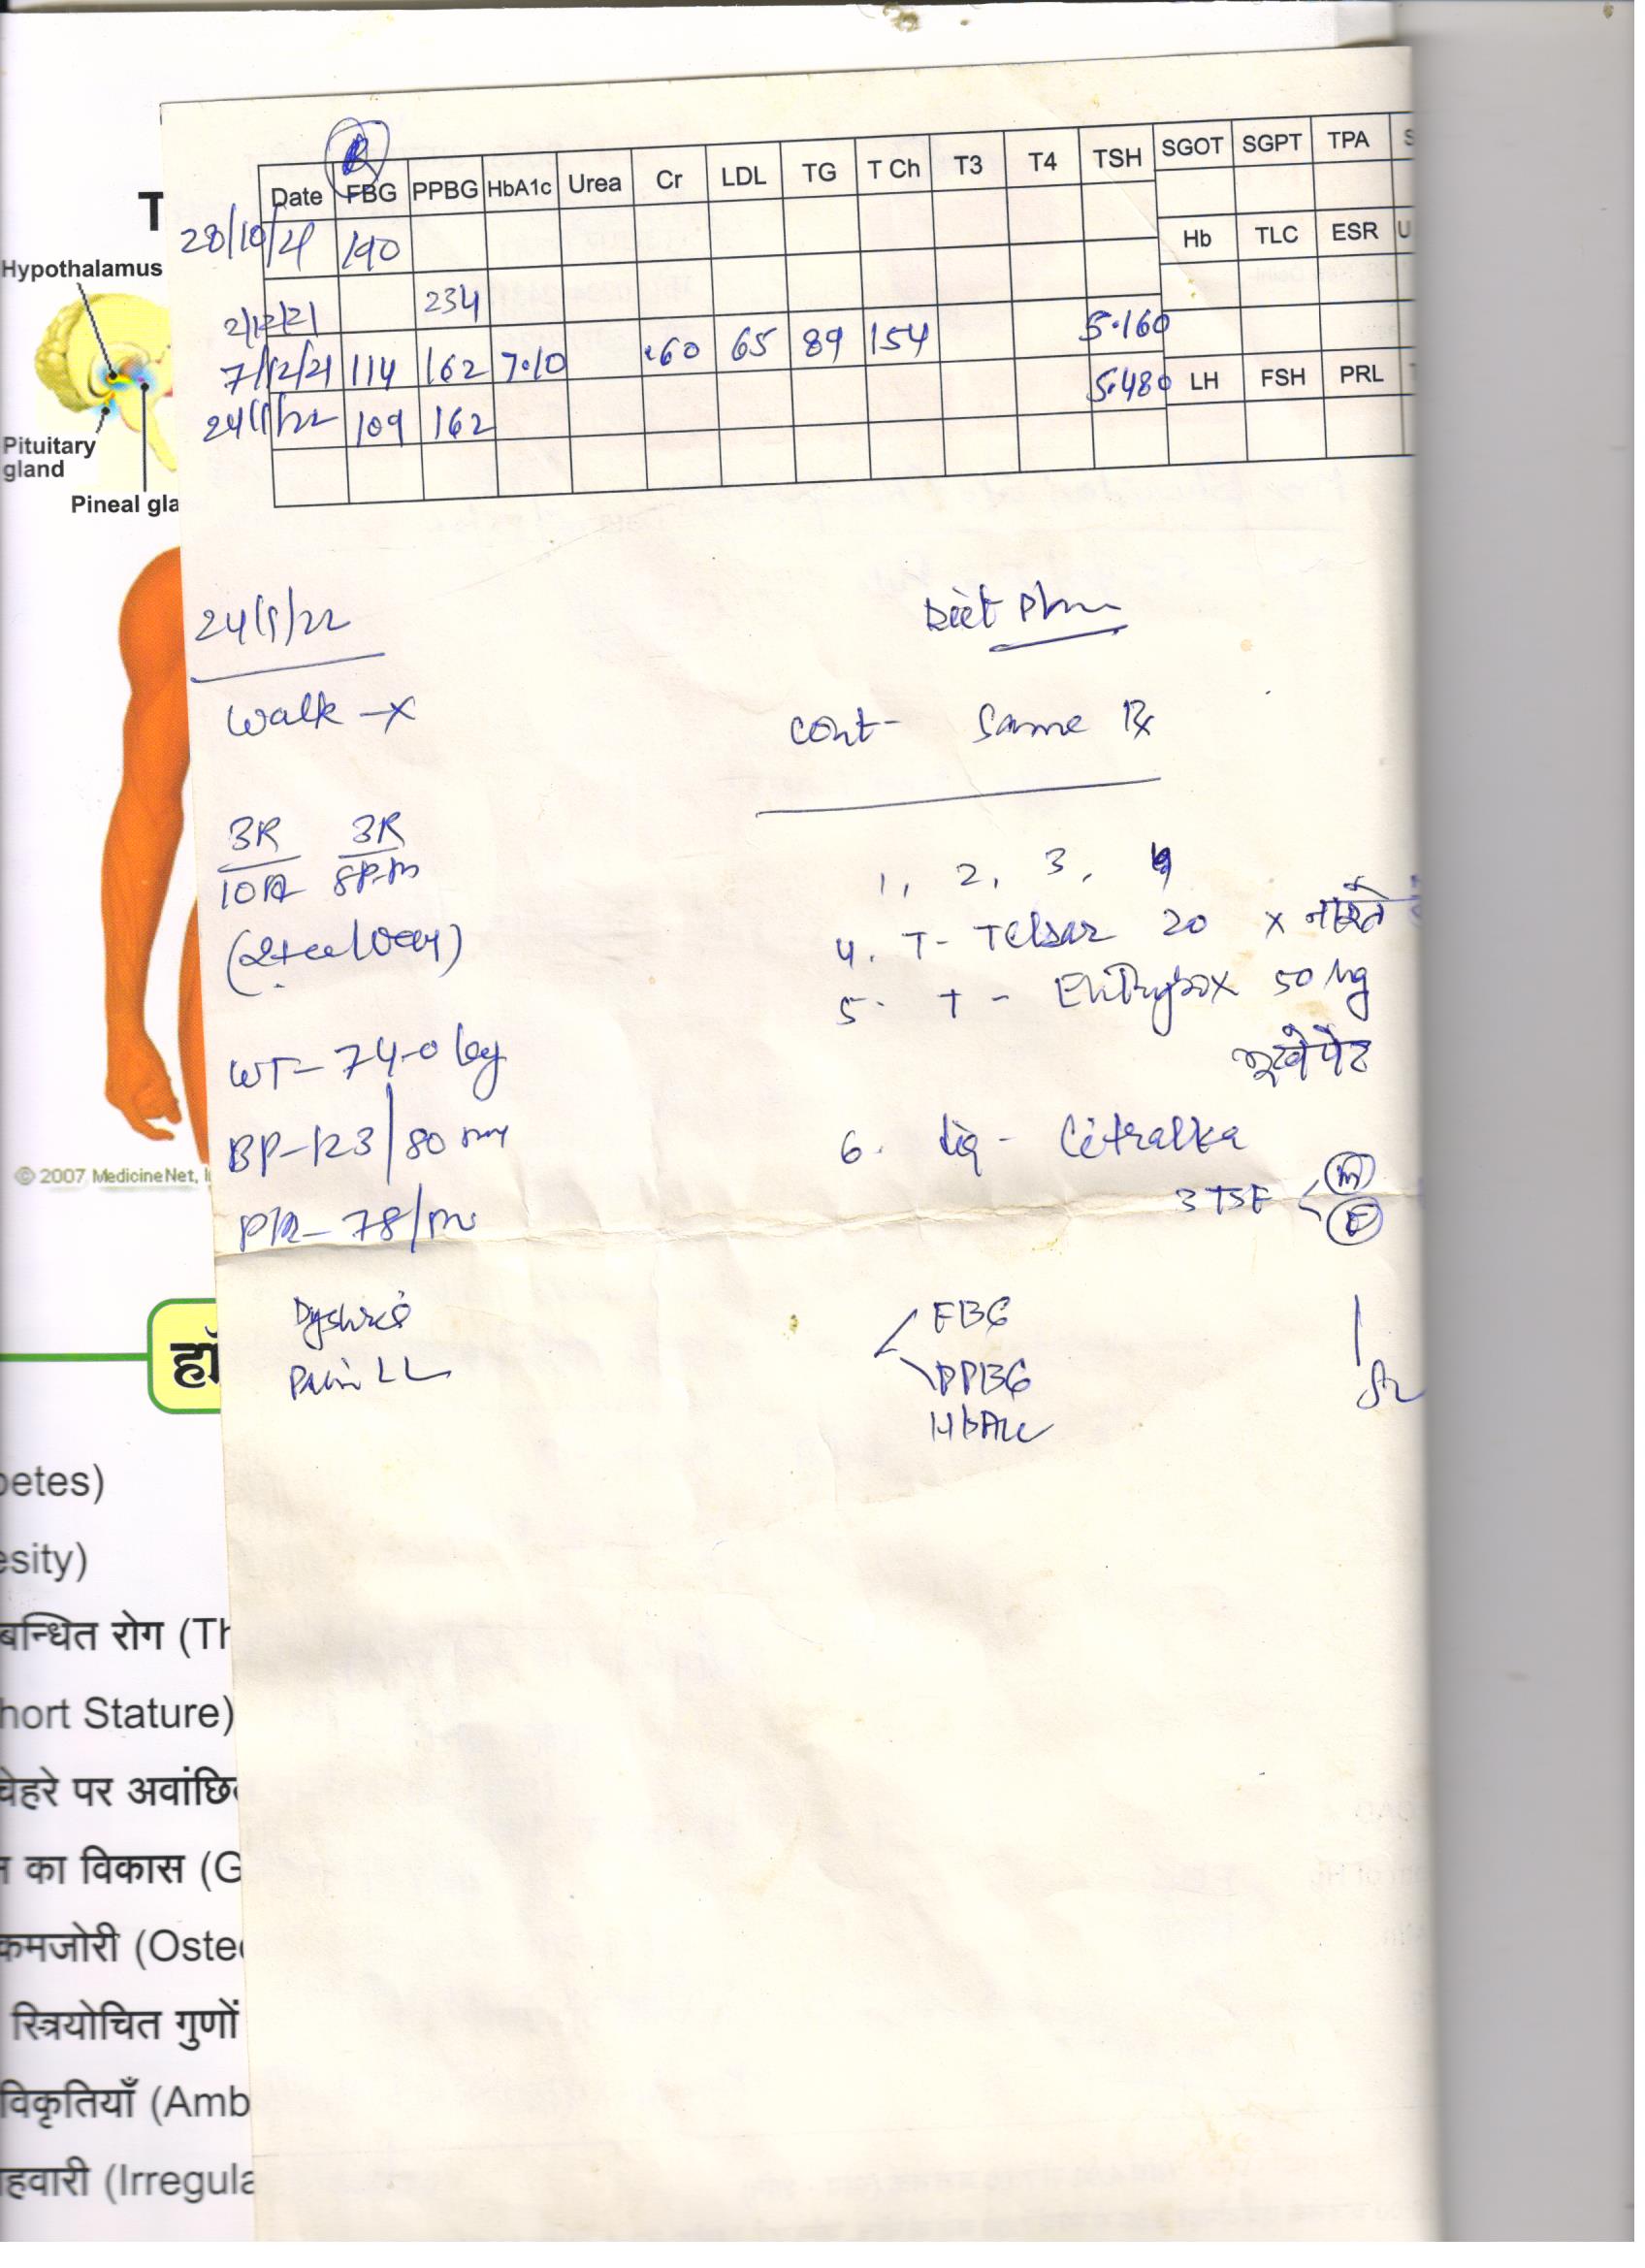 T
Hypothalamus
Pituitary
gland
Pineal gla
© 2007 MedicineNet, I
Date FBG PPBG HbA1c Urea Cr LDL TG T Ch T3 T4 TSH SGOT SGPT TPA S
28/10/21 190
Hb TLC ESR U
2/12/21 234
7/12/21 114 162 7.10 .60 65 89 154 5.160
24/1/22 109 162 5.480
LH FSH PRL
24/1/22
Walk - X
3R 3R
10A 8P.M
WT- 74.0 kg
BP- 123/80
PR- 78/m
Pain LL
Diet Plan
Cont- Same Rx
1, 2, 3, 4
4. T- Telsar 20 x नाश्ते
5. T- 50 Mg
भूखे पेट
6. Liq- Citralka
3 TSF M
E
FBG
PPBG
HbA1c
हॉ
betes)
esity)
बन्धित रोग (Th
hort Stature)
चेहरे पर अवांछि
का विकास (G
कमजोरी (Oste
स्त्रियोचित गुणों
विकृतियाँ (Amb
हवारी (Irregula